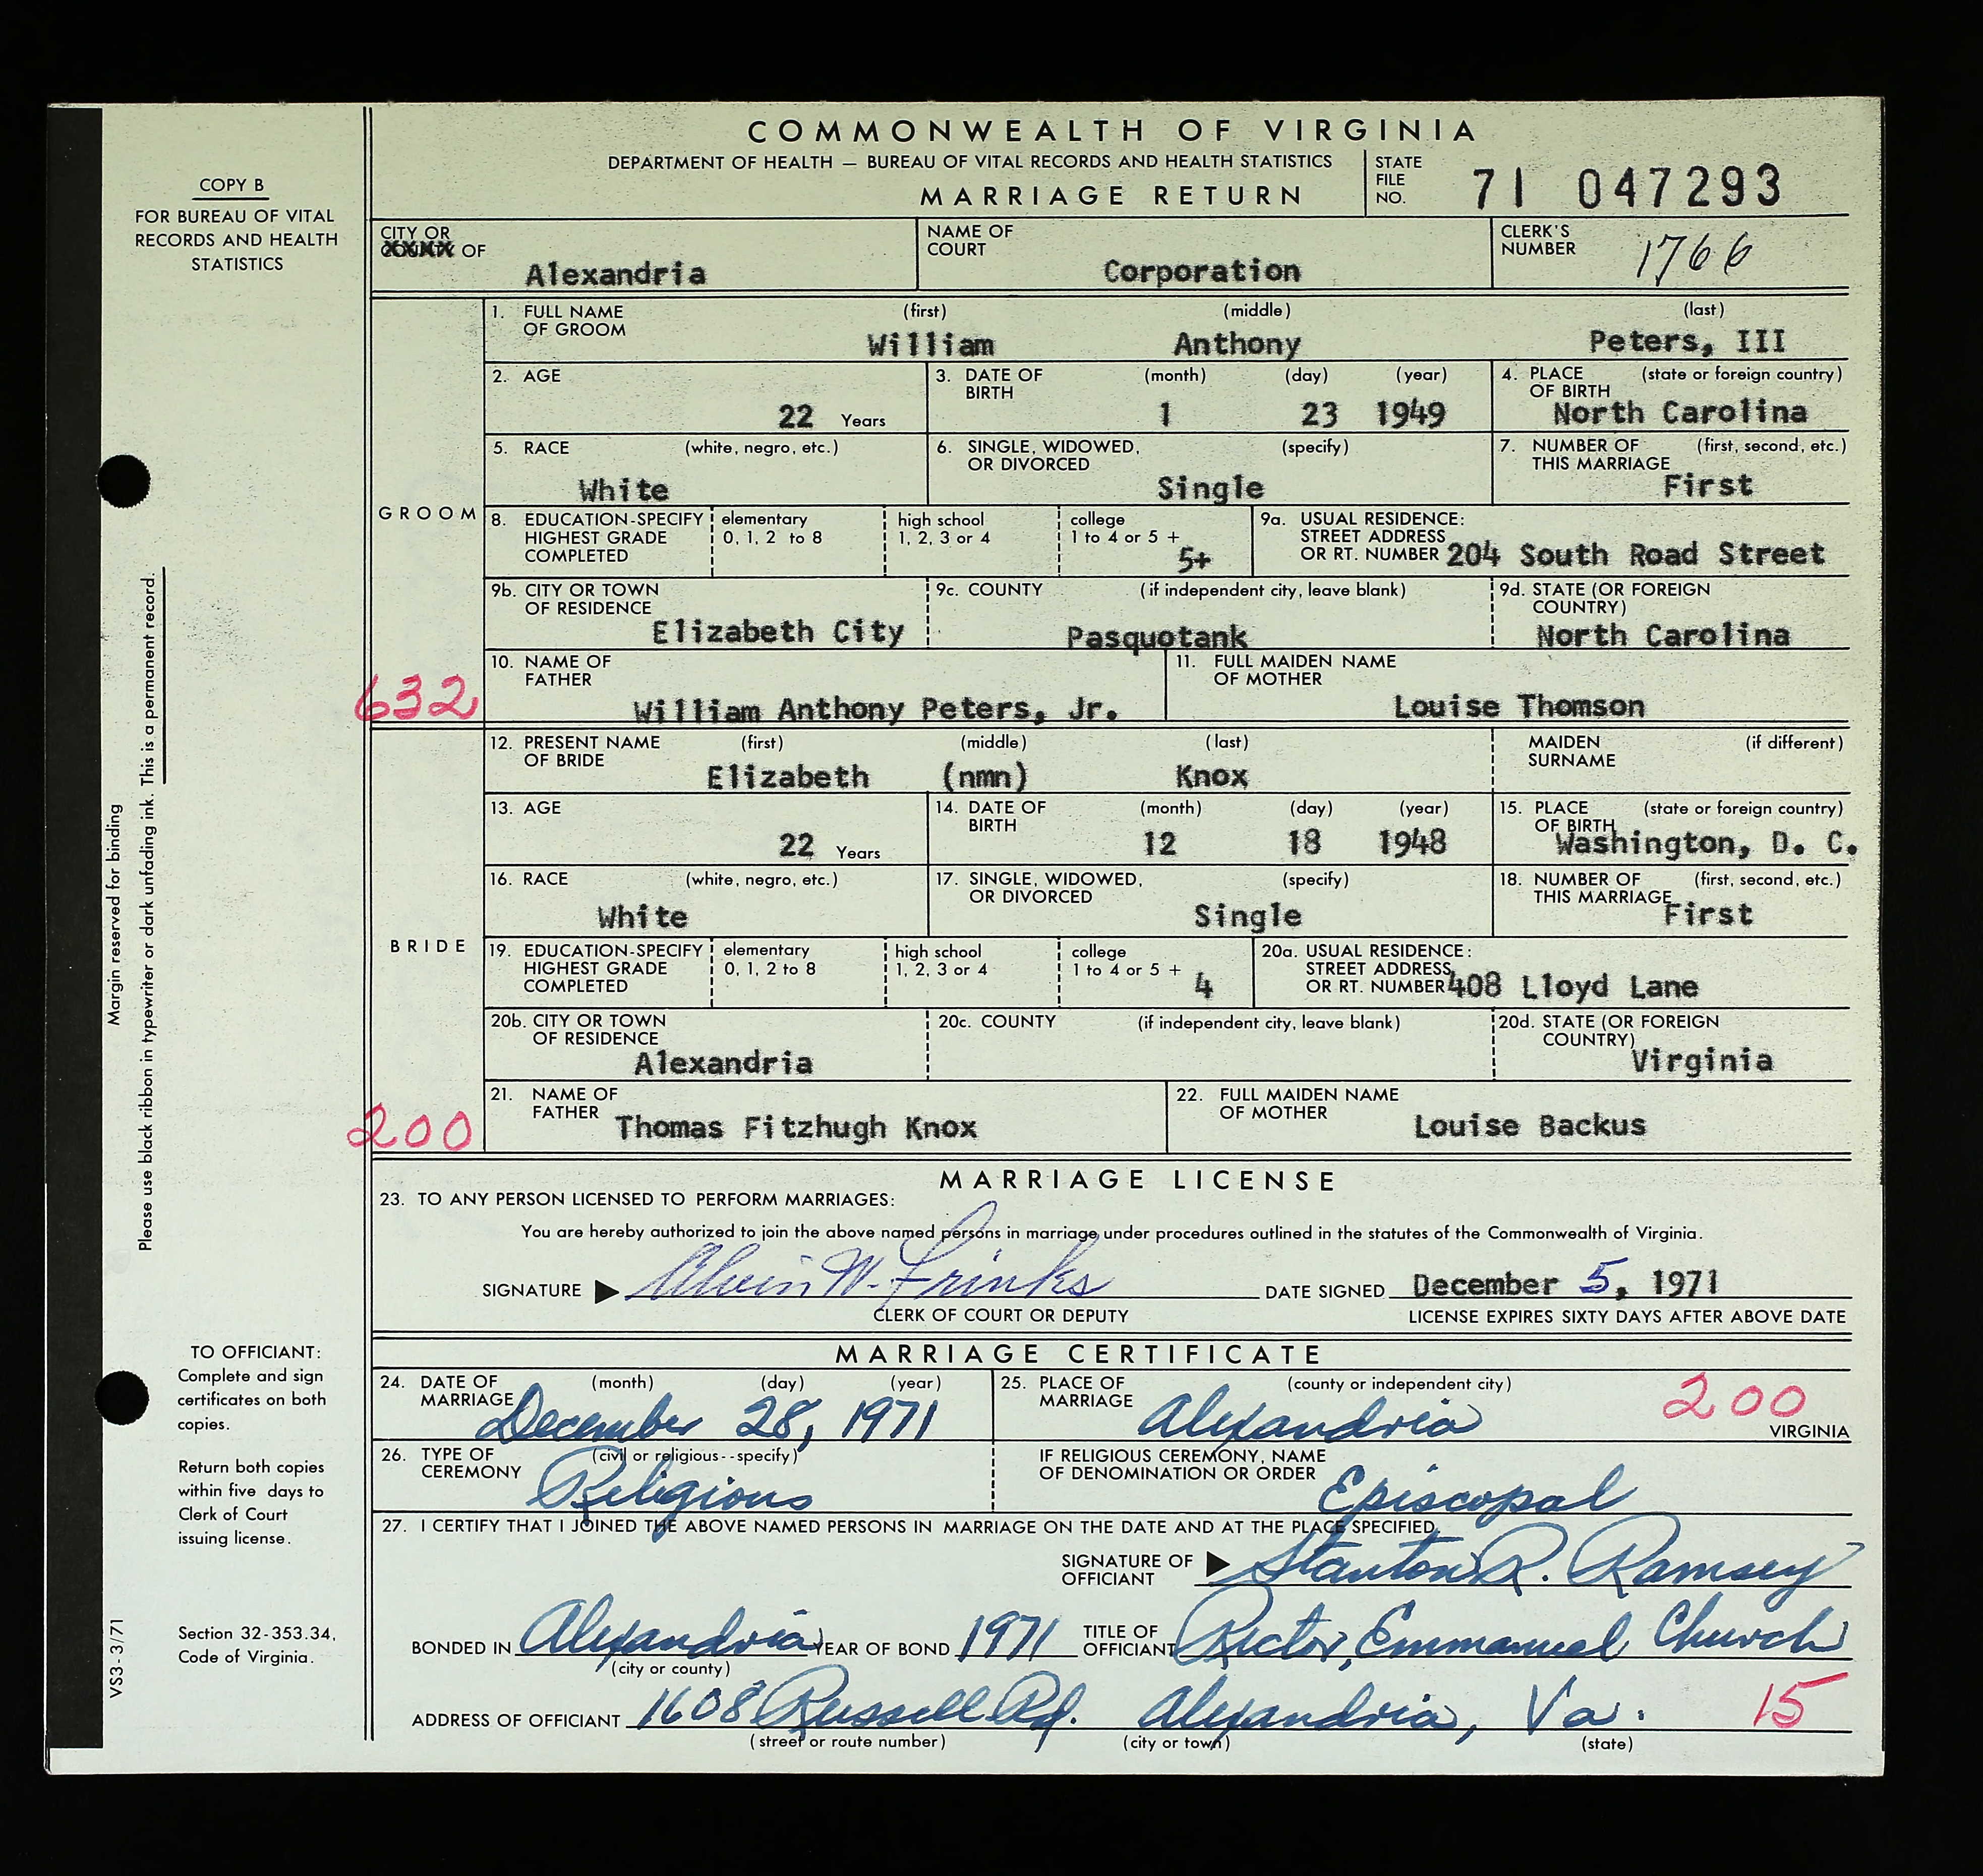 COPY B
FOR BUREAU OF VITAL
RECORDS AND HEALTH
STATISTICS
COMMONWEALTH OF VIRGINIA
DEPARTMENT OF HEALTH — BUREAU OF VITAL RECORDS AND HEALTH STATISTICS
MARRIAGE RETURN
STATE FILE NO. 71 047293
CITY OR COUNTY OF Alexandria
NAME OF COURT Corporation
CLERK'S NUMBER 1766
GROOM
1. FULL NAME OF GROOM (first) William (middle) Anthony (last) Peters, III
2. AGE 22 Years
3. DATE OF BIRTH (month) 1 (day) 23 (year) 1949
4. PLACE OF BIRTH (state or foreign country) North Carolina
5. RACE (white, negro, etc.) White
6. SINGLE, WIDOWED, OR DIVORCED (specify) Single
7. NUMBER OF THIS MARRIAGE (first, second, etc.) First
8. EDUCATION-SPECIFY HIGHEST GRADE COMPLETED elementary 0, 1, 2 to 8 high school 1, 2, 3 or 4 college 1 to 4 or 5 + 5+
9a. USUAL RESIDENCE: STREET ADDRESS OR RT. NUMBER 204 South Road Street
9b. CITY OR TOWN OF RESIDENCE Elizabeth City
9c. COUNTY (if independent city, leave blank) Pasquotank
9d. STATE (OR FOREIGN COUNTRY) North Carolina
10. NAME OF FATHER William Anthony Peters, Jr.
11. FULL MAIDEN NAME OF MOTHER Louise Thomson
632
BRIDE
12. PRESENT NAME OF BRIDE (first) Elizabeth (middle) (nmn) (last) Knox
MAIDEN SURNAME (if different)
13. AGE 22 Years
14. DATE OF BIRTH (month) 12 (day) 18 (year) 1948
15. PLACE OF BIRTH (state or foreign country) Washington, D. C.
16. RACE (white, negro, etc.) White
17. SINGLE, WIDOWED, OR DIVORCED (specify) Single
18. NUMBER OF THIS MARRIAGE (first, second, etc.) First
19. EDUCATION-SPECIFY HIGHEST GRADE COMPLETED elementary 0, 1, 2 to 8 high school 1, 2, 3 or 4 college 1 to 4 or 5 + 4
20a. USUAL RESIDENCE: STREET ADDRESS OR RT. NUMBER 408 Lloyd Lane
20b. CITY OR TOWN OF RESIDENCE Alexandria
20c. COUNTY (if independent city, leave blank)
20d. STATE (OR FOREIGN COUNTRY) Virginia
21. NAME OF FATHER Thomas Fitzhugh Knox
22. FULL MAIDEN NAME OF MOTHER Louise Backus
200
MARRIAGE LICENSE
23. TO ANY PERSON LICENSED TO PERFORM MARRIAGES:
You are hereby authorized to join the above named persons in marriage under procedures outlined in the statutes of the Commonwealth of Virginia.
SIGNATURE ▶ Alvin W. Frinks DATE SIGNED December 5, 1971
CLERK OF COURT OR DEPUTY LICENSE EXPIRES SIXTY DAYS AFTER ABOVE DATE
MARRIAGE CERTIFICATE
24. DATE OF MARRIAGE (month) (day) (year) December 28, 1971
25. PLACE OF MARRIAGE (county or independent city) Alexandria 200 VIRGINIA
26. TYPE OF CEREMONY (civil or religious--specify) Religious
IF RELIGIOUS CEREMONY, NAME OF DENOMINATION OR ORDER Episcopal
27. I CERTIFY THAT I JOINED THE ABOVE NAMED PERSONS IN MARRIAGE ON THE DATE AND AT THE PLACE SPECIFIED.
SIGNATURE OF OFFICIANT ▶ Stanton R. Ramsey
BONDED IN Alexandria YEAR OF BOND 1971 TITLE OF OFFICIANT Rector, Emmanuel Church
(city or county)
ADDRESS OF OFFICIANT 1608 Russell Rd. Alexandria, Va. 15
(street or route number) (city or town) (state)
Margin reserved for binding
Please use black ribbon in typewriter or dark unfading ink. This is a permanent record.
TO OFFICIANT:
Complete and sign
certificates on both
copies.
Return both copies
within five days to
Clerk of Court
issuing license.
Section 32-353.34,
Code of Virginia.
VS3-3/71